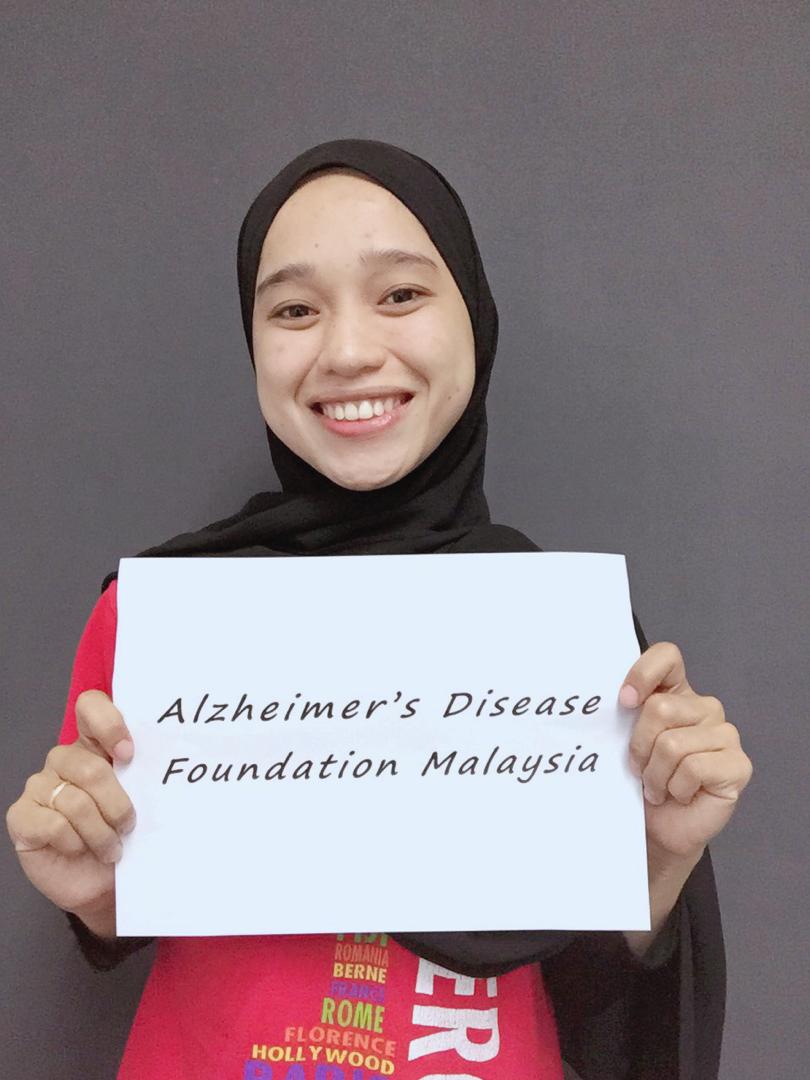 Alzheimer's Disease
Foundation Malaysia
ROMANIA
BERNE
FRANCE
ROME
FLORENCE
HOLLYWOOD